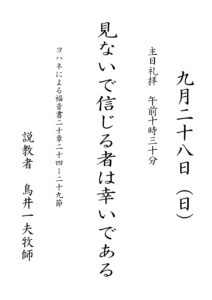 九月二十八日（日）
主日礼拝　午前十時三十分
見ないで信じる者は幸いである
ヨハネによる福音書二十章二十四－二十九節
説教者　鳥井一夫牧師